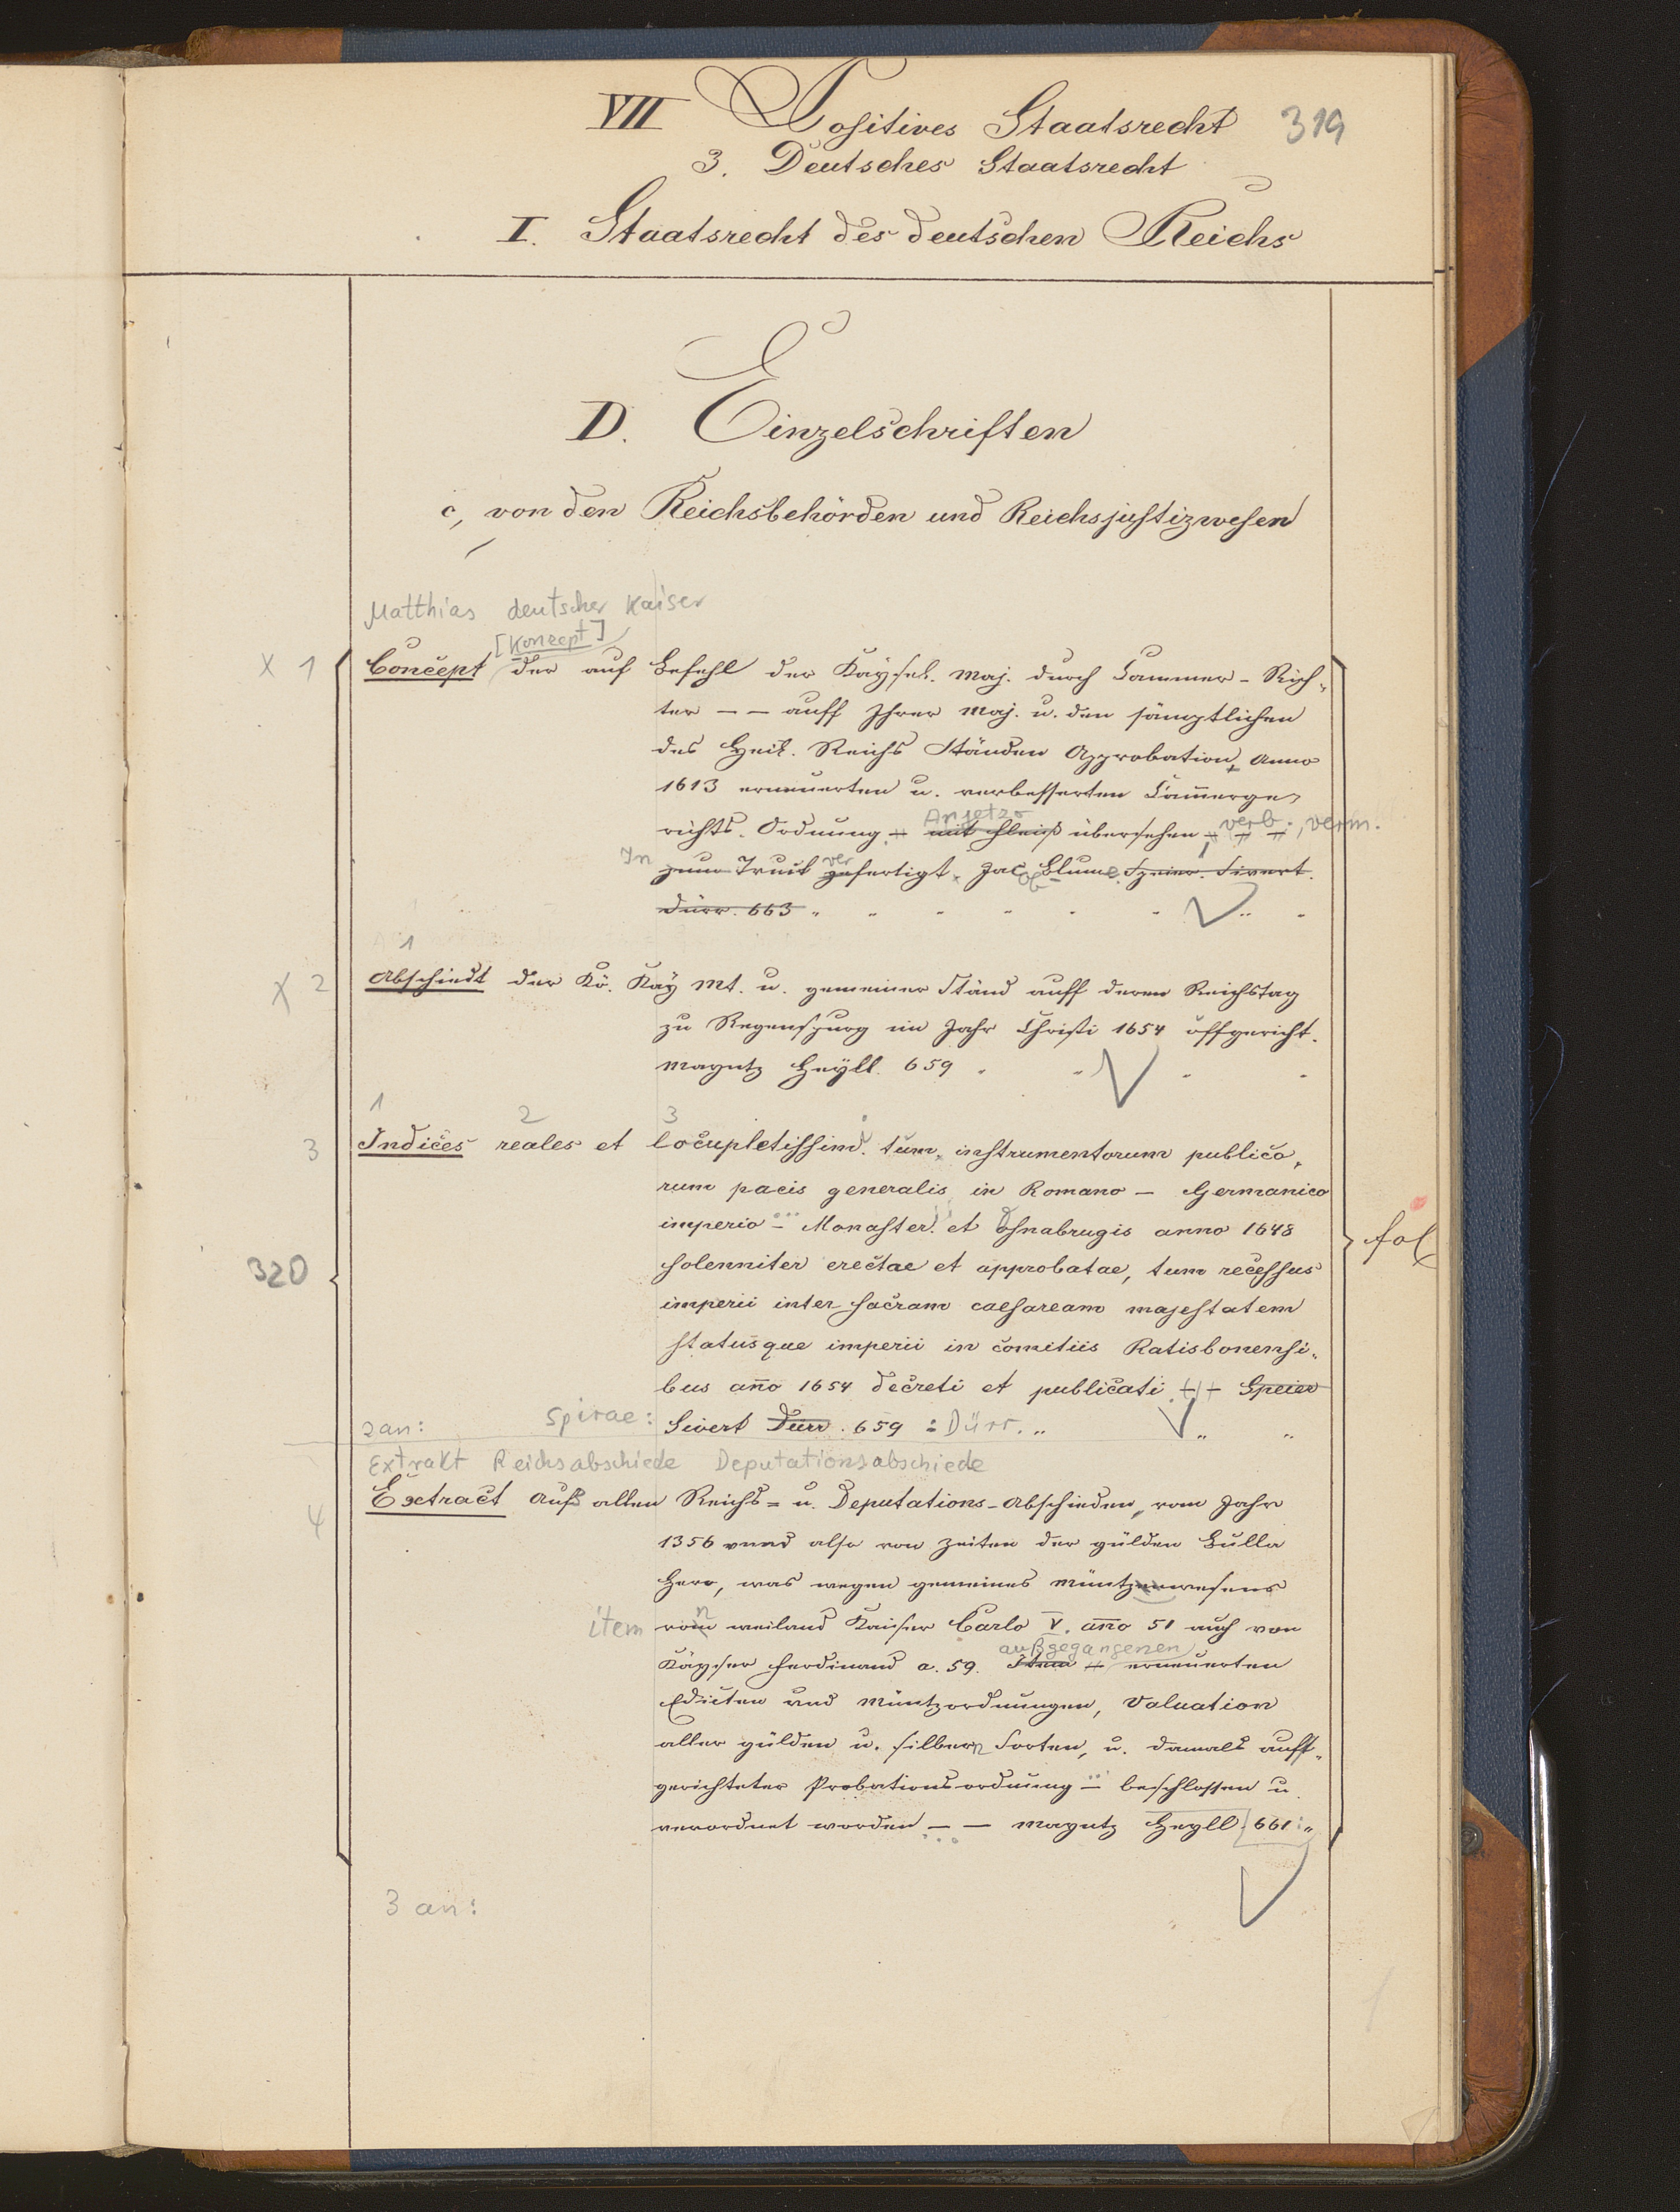 VII Positives Staatsrecht 319
3. Deutsches Staatsrecht
I. Staatsrecht des deutschen Reichs
D. Einzelschriften
c, von den Reichsbehörden und Reichsjustizwesen
Matthias deutscher Kaiser
[Koncept]
X 1 Concept der auf Befehl der Kaysel. Maj. durch Cammer-Rich-
ter — — auff Ihrer Maj. u. den sämptlichen
des Heil. Reichs Ständen Approbation, Anno
1613 erneuerten u. verbesserten Cam̄erge-
Anjetzo
richts-Ordnung mit Fleiß übersehen, verb., verm.
In zum Truck ver gefertigt. Jacob Blume. Speier. Sivert.
Dürr. 663
1
X 2 Abschiedt der Rö. Kay Mt. u. gemeiner Ständ auff deren Reichstag
zu Regenspurg im Jahr Christi 1654 offgericht.
Mayntz Heyll. 659
1 2 3
3 Indices reales et locupletissimi tum instrumentorum publico-
rum pacis generalis in Romano-Germanico
imperio — Monaster. et Osnabrugis anno 1648
solenniter erectae et approbatae, tum recessus
fol
320 imperii inter sacram caesaream majestatem
statusque imperii in comitiis Ratisbonensi-
bus an̄o 1654 decreti et publicati. Speier
2an: Spirae: Sivert Dürr. 659 : Dürr.
Extrakt Reichsabschiede Deputationsabschiede
4 Extract Auß allen Reichs- u. Deputations-Abschieden, vom Jahr
1356 vnnd also von Zeiten der gülden Bulla
hero, was wegen gemeines Müntzwesens
item von weiland Kaiser Carlo V. an̄o 51 auch von
außgegangenen
Käyser Ferdinand a. 59. Item erneuerten
Edicten und Müntzordnungen, Valuation
aller gülden u. silbern Sorten, u. damals auff-
gerichteter Probationsordnung — beschlossen u.
verordnet worden — — Mayntz Heyll. 661
3 an: